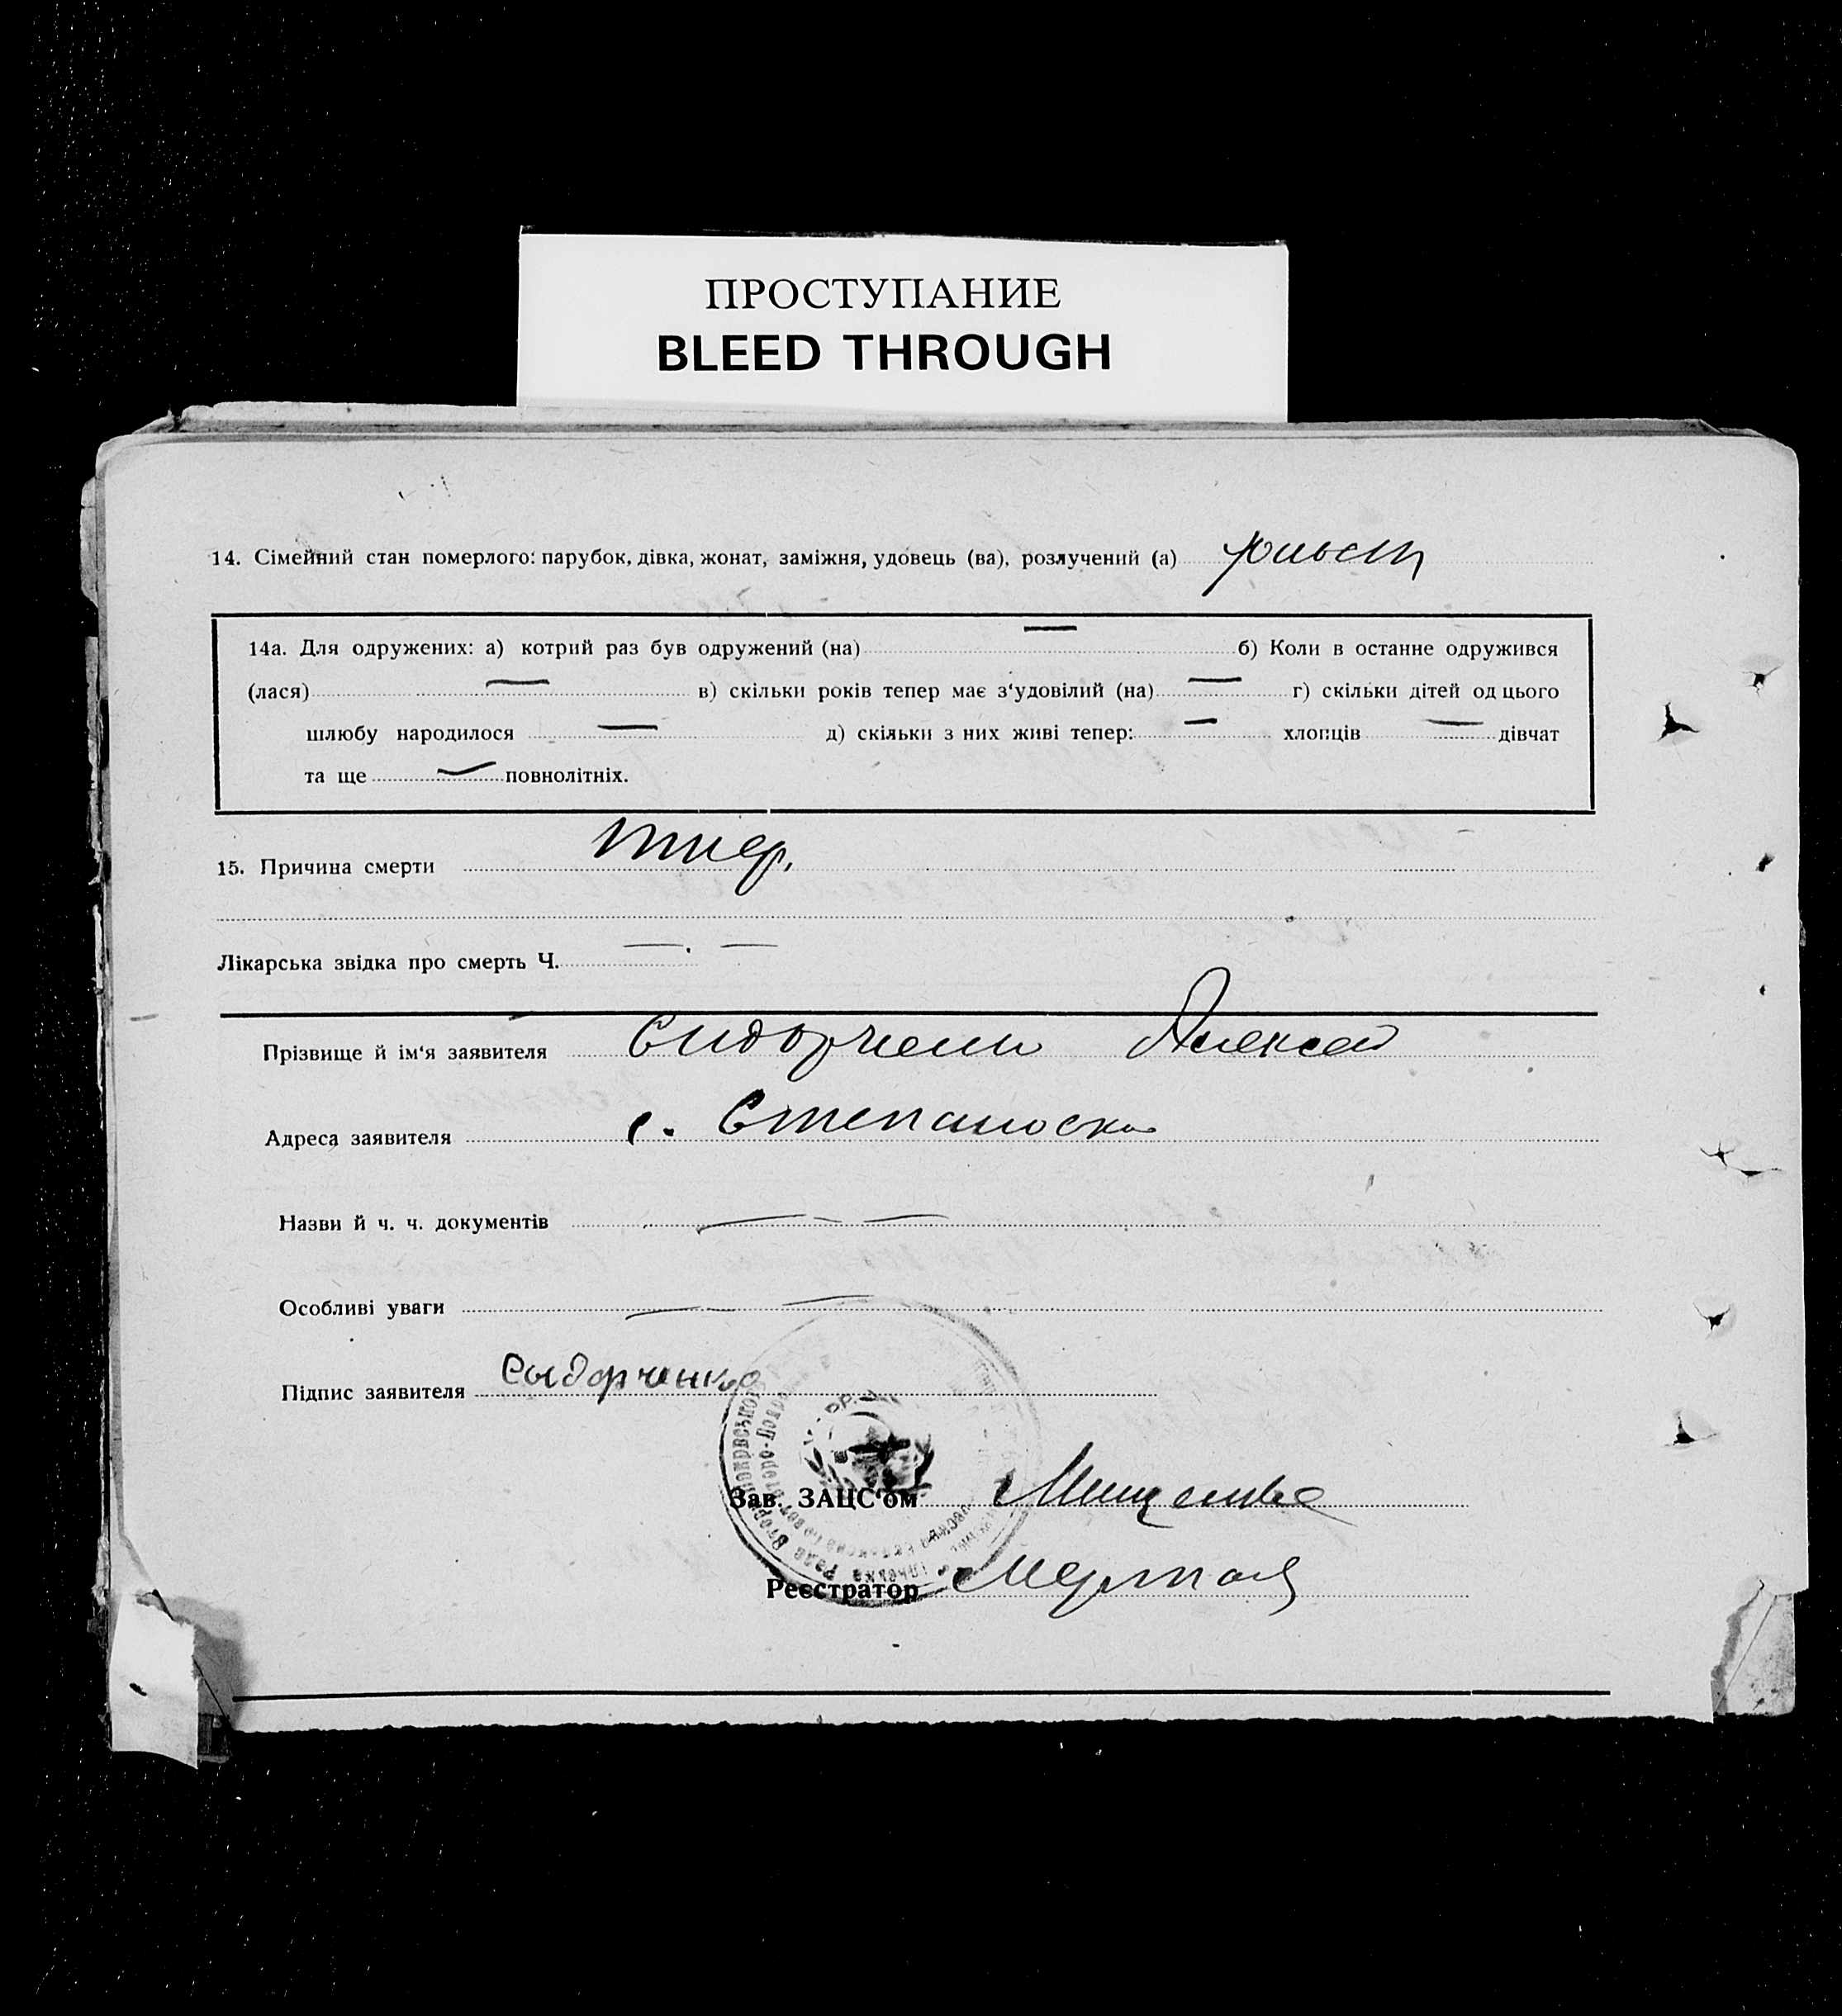 ПРОСТУПАНИЕ
BLEED THROUGH
14. Сімейний стан померлого: парубок, дівка, жонат, заміжня, удовець (ва), розлучений (а)
14а. Для одружених: а) котрий раз був одружений (на) — б) Коли в останне одружився
(лася) — в) скільки років тепер має з‘удовілий (на) — г) скільки дітей од цього
шлюбу народилося — д) скільки з них живі тепер: — хлопців — дівчат
та ще — повнолітніх.
15. Причина смерти
Лікарська звідка про смерть Ч. — . —
Прізвище й ім‘я заявителя Сидорченко Алексей
Адреса заявителя с. Степановка
Назви й ч. ч. документів — - —
Особливі уваги — - —
Підпис заявителя Сыдорченко
Зав. ЗАЦС‘ом Мищенко
Реєстратор